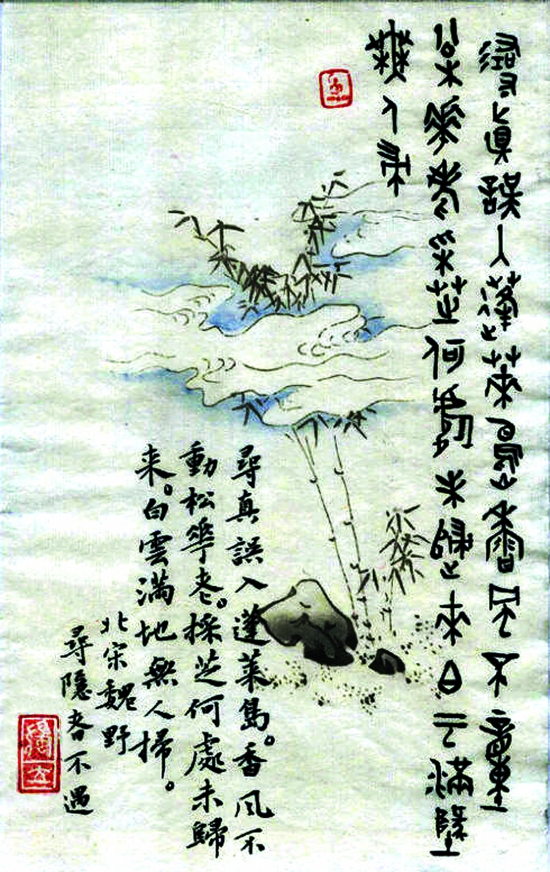 尋真誤入蓬萊島香風不動
松華老采芝何處未歸來白云滿地
無人掃
尋真誤入蓬萊島。香風不
動松華老。採芝何處未歸
来。白雲滿地無人掃。
北宋魏野
尋隱者不遇